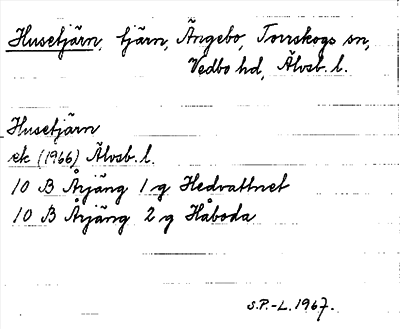 Husetjärn, tjärn, Ängebo, Torrskogs sn,
Vedbo hd, Älvsb. l.
Husetjärn
ek (1966) Älvsb. l.
10 B Årjäng 1 g Hedvattnet
10 B Årjäng 2 g Håboda
S.P.-L. 1967.